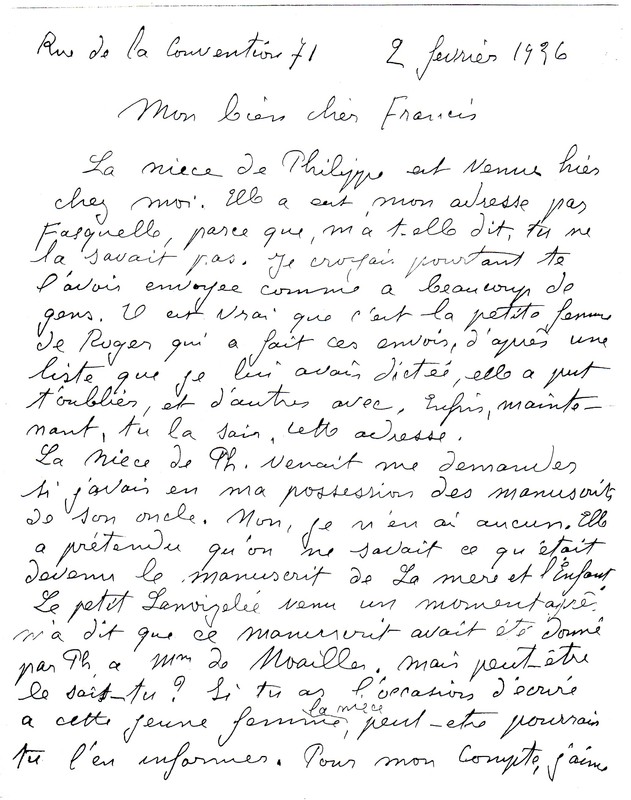 Rue de la Convention 71 2 fevrier 1936
Mon bien cher Francis
La niece de Philippe est venue hier
chez moi. Elle a eut mon adresse par
Fasquelle, parce que, m'a t-elle dit, tu ne
la savait pas. Je croyais pourtant te
l'avoir envoyee comme a beaucoup de
gens. Il est vrai que c'est la petite femme
de Roger qui a fait ces envois, d'après une
liste que je lui avais dictée, elle a put
t'oublier, et d'autres avec. Enfin, mainte-
nant, tu la sais, cette adresse.
La niece de Ph. venait me demander
si j'avais en ma possession des manuscrits
de son oncle. Non, je n'en ai aucun. Elle
a prétendu qu'on ne savait ce qu'était
devenu le manuscrit de La mere et l'Enfant.
Le petit Lanoizelée venu un moment après
m'a dit que ce manuscrit avait été donné
par Ph a Mme de Noailles. mais peut-être
le sais-tu ? Si tu as l'occasion d'écrire
a cette jeune femme, la niece, peut-etre pourrais
tu l'en informer. Pour mon compte, j'aime